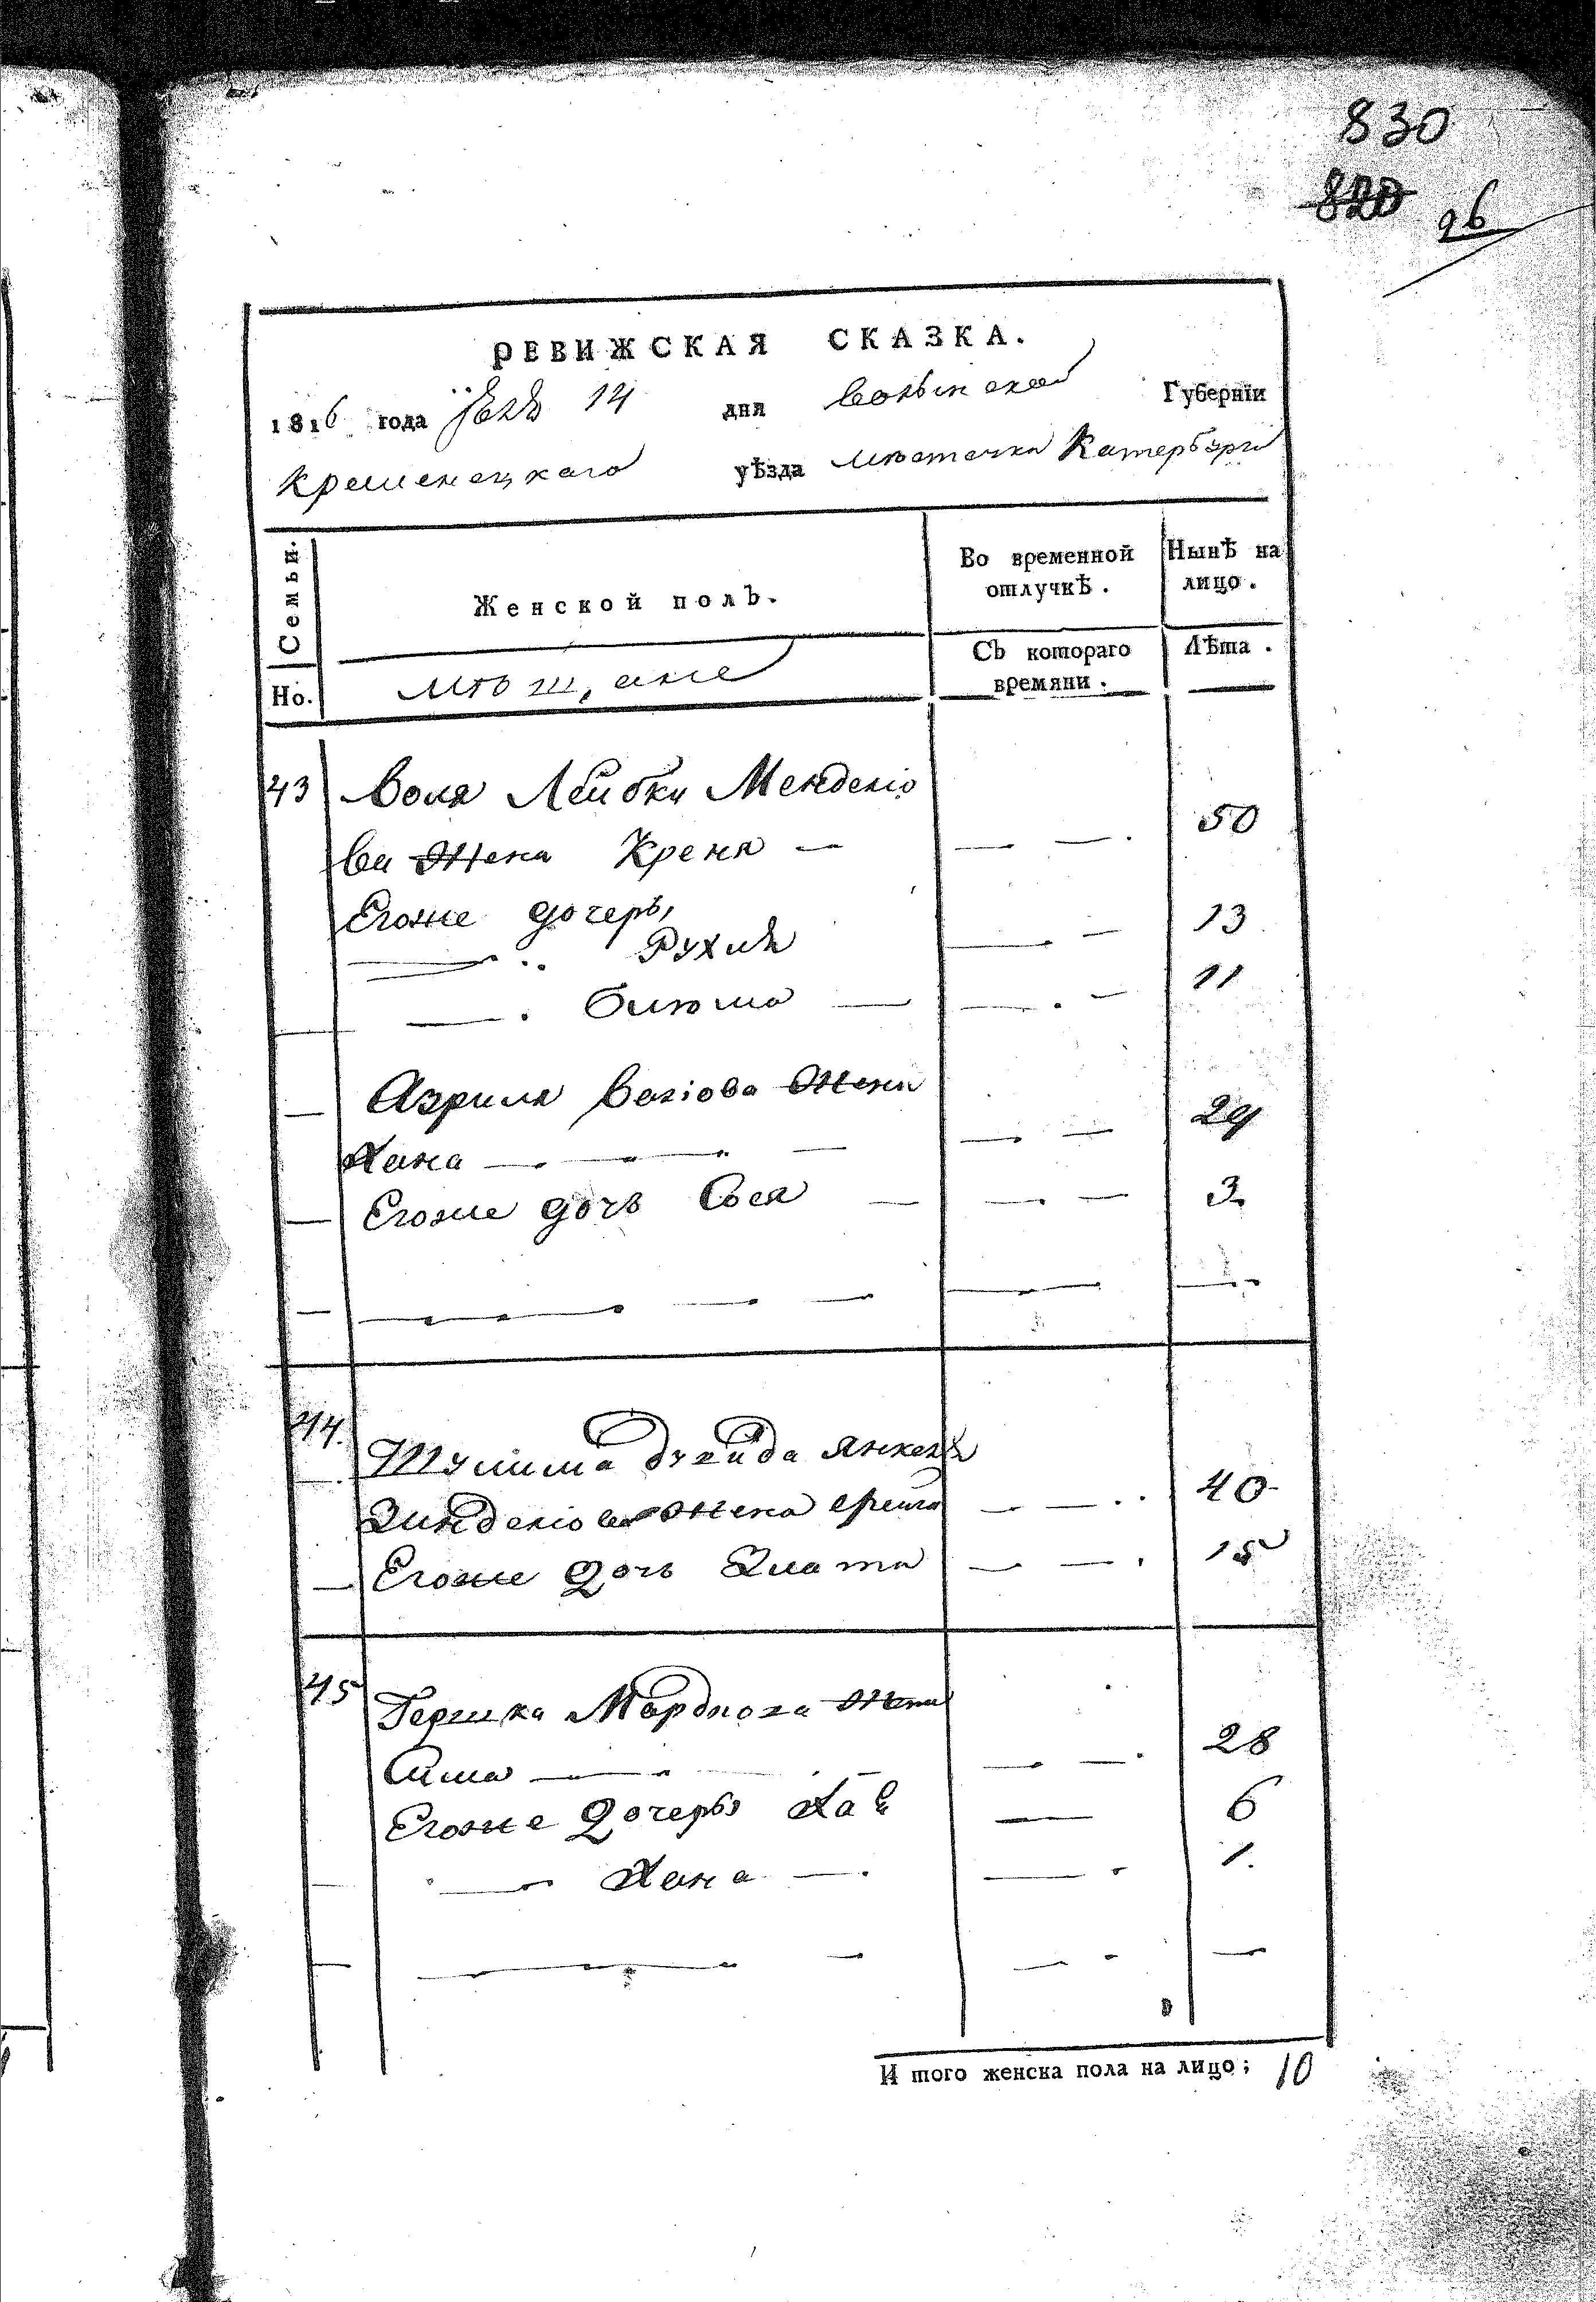 830
820
96
РЕВИЖСКАЯ СКАЗКА.
1816 года 14 дня Волынской Губернїи
Кременецкаго уѣзда мѣстечка Катербурга
Семьи.
Женской полъ.
Во временной отлучкѣ.
Нынѣ на лицо.
Но.
мѣщане
Съ котораго времяни.
Лѣта.
43 Воля Лейбки Менделіо
ва жена Креня — 50
Егоже дочерь,
Рухля 13
11
Азриля Воліова жена
Хана 29
Егоже дочь Сося 3
44.
Янкеля
Зинделіова жена 40
Егоже дочь Злата 15
45 Гершка Мордкова жена
Сима 28
Егоже дочерь Хая 6
Хана 1.
И того женска пола на лицо; 10